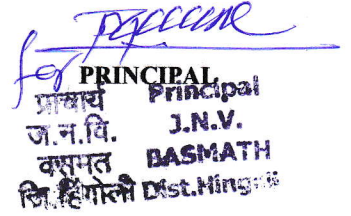 for PRINCIPAL
प्राचार्य Principal
ज.न.वि. J.N.V.
वसमत BASMATH
जि.हिंगोली Dist.Hingoli